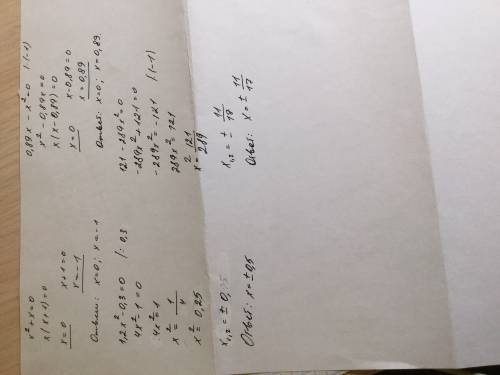 x² + x = 0
x(x+1) = 0
x = 0 x+1 = 0
x = -1
Ответ: x=0; x=-1
1,2x² - 0,3 = 0 /: 0,3
4x² - 1 = 0
4x² = 1
x² = 1/4
x² = 0,25
x₁,₂ = ± 0,
Ответ: x = ± 0,5
0,89x - x² = 0 |·(-1)
x² - 0,89x = 0
x(x - 0,89) = 0
x = 0 x - 0,89 = 0
x = 0,89
Ответ: x=0; x=0,89.
121 - 289x² = 0
-289x² + 121 = 0
-289x² = -121 |(-1)
289x² = 121
x² = 121/289
x₁,₂ = ± 11/17
Ответ: x = ± 11/17